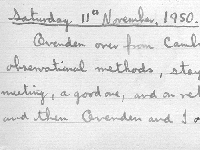 Saturday 11th November, 1950.
Ovenden over from Camb
observational methods, stay
meeting, a good one, and on ret
and then Ovenden and I